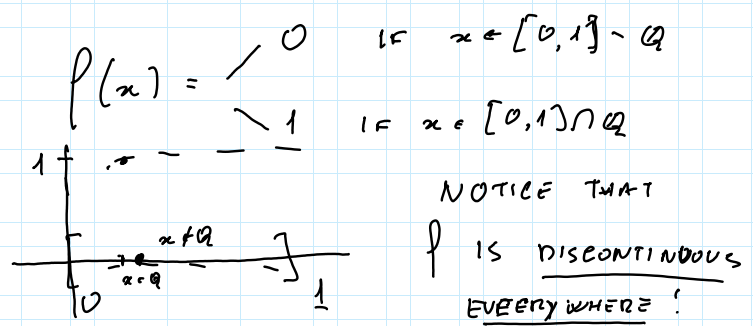 f(x) = 0 IF x ∈ [0,1] ∖ Q
1 IF x ∈ [0,1] ∩ Q
1
x ∉ Q
x ∈ Q
0
1
NOTICE THAT
f IS DISCONTINUOUS
EVEERYWHERE !